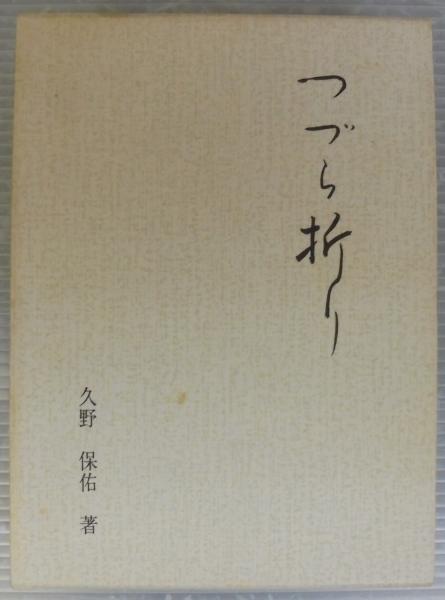 つづら折り
久野 保佑 著